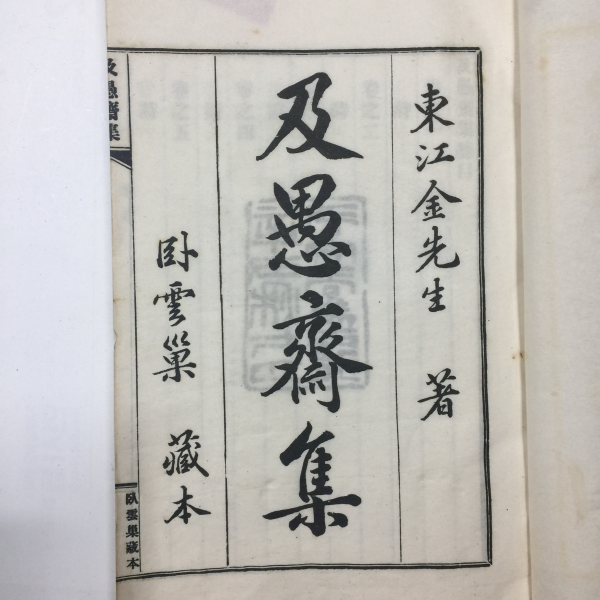 東江金先生 著
及愚齋集
卧雲巢 藏本
及愚齋集
臥雲巢藏本